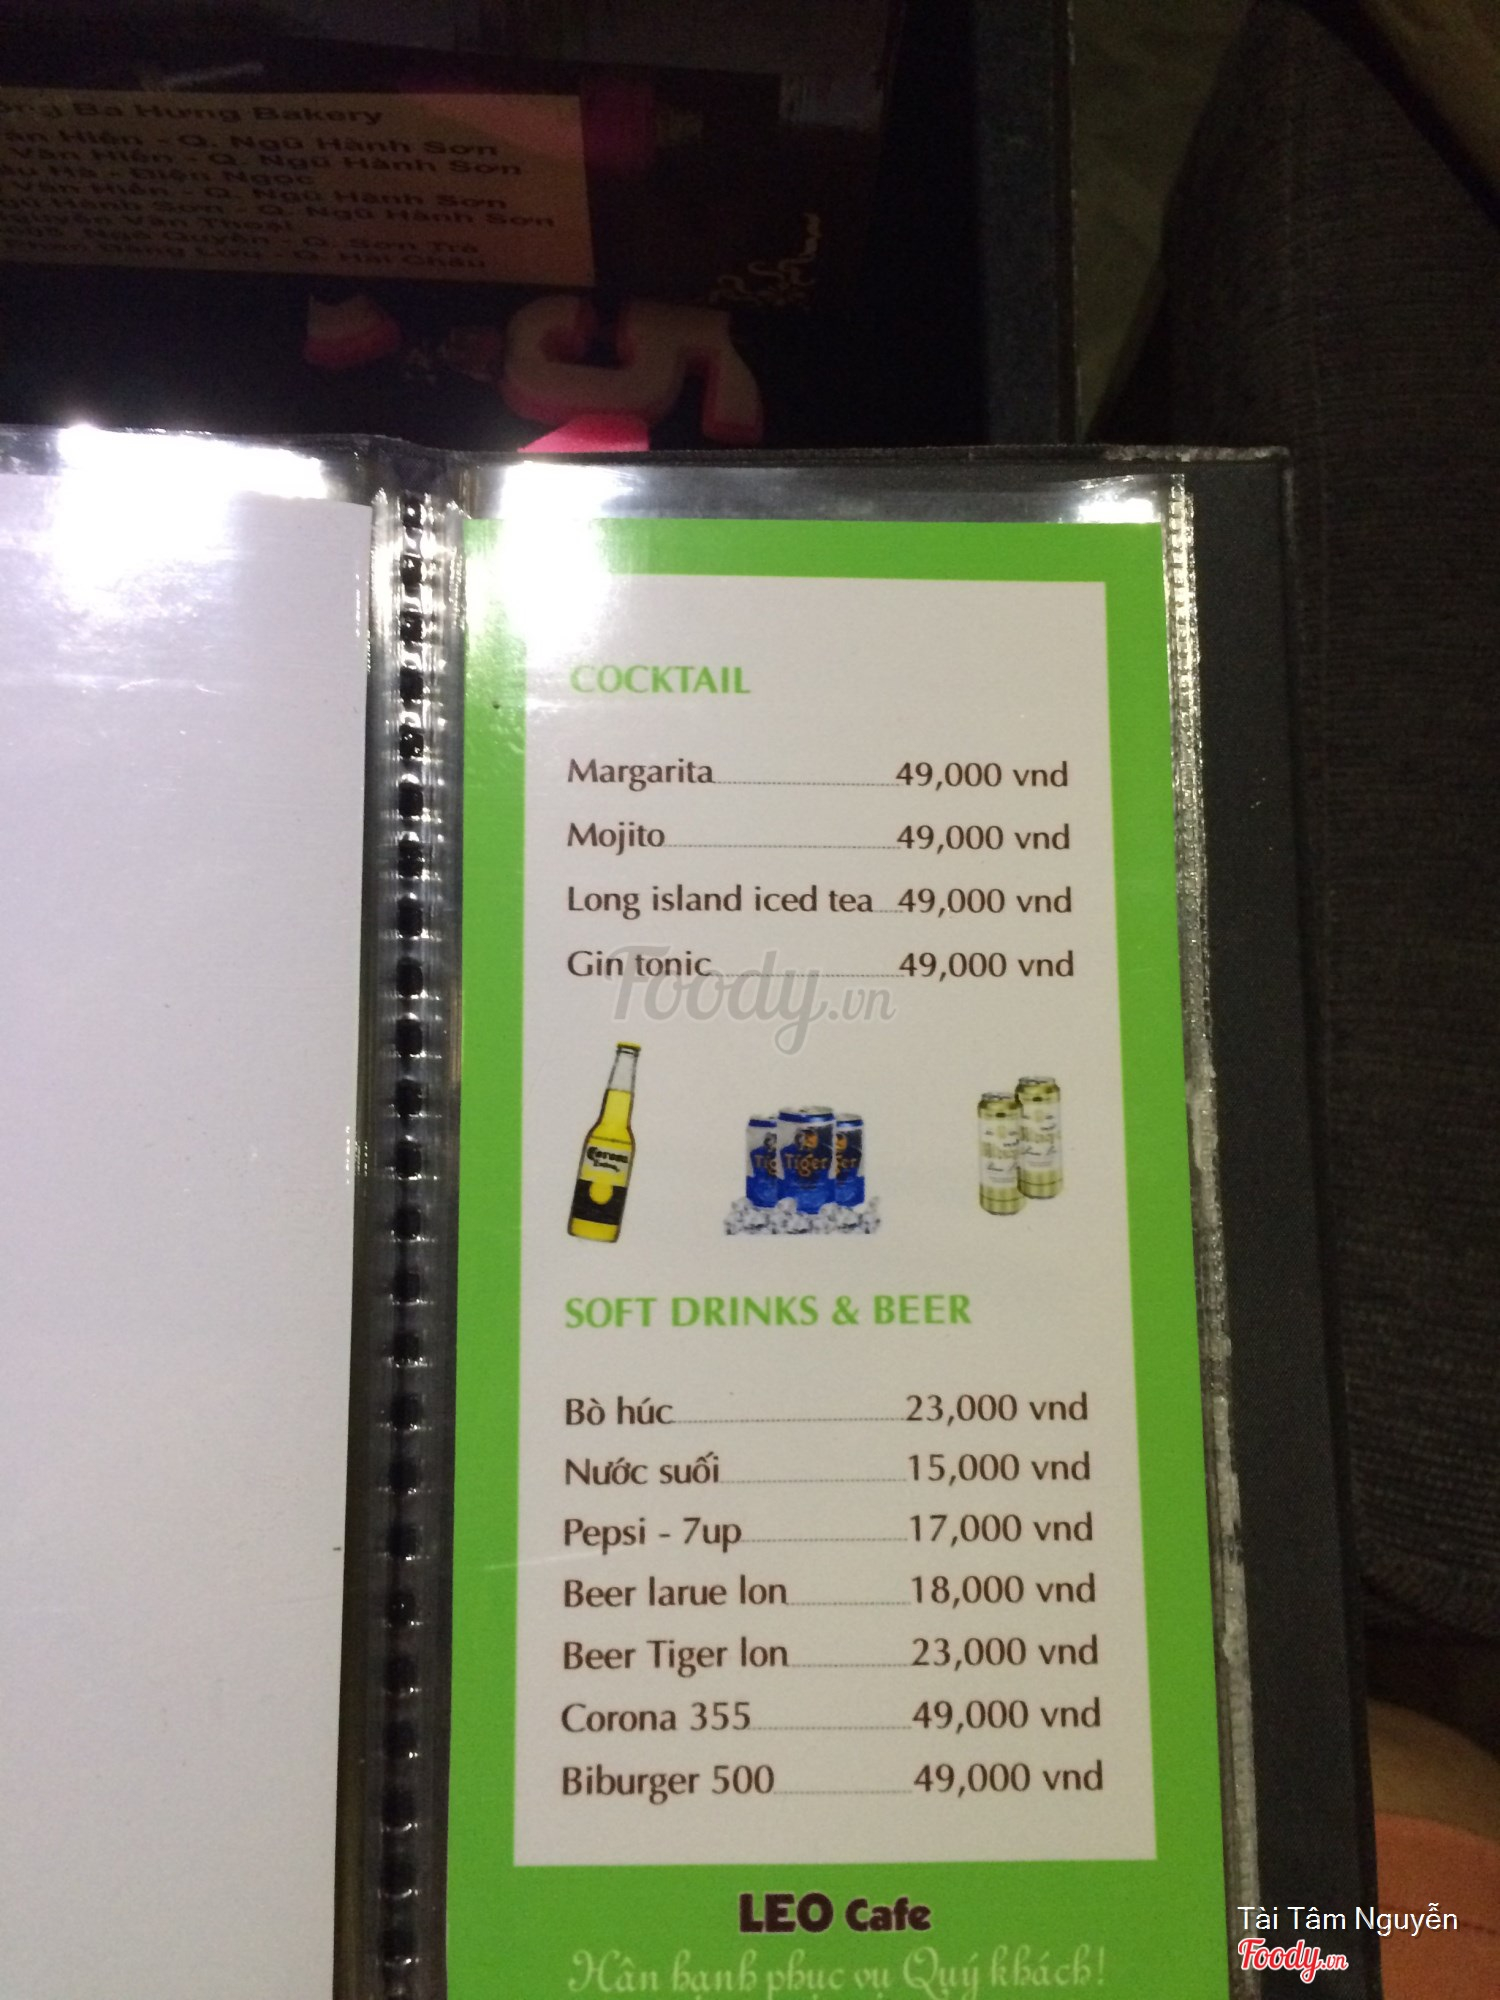 Ba Hưng Bakery
Văn Hiến - Q. Ngũ Hành Sơn
Văn Hiến - Q. Ngũ Hành Sơn
- Điện Ngọc
Văn Hiến - Q. Ngũ Hành Sơn
Hành Sơn - Q. Ngũ Hành Sơn
Nguyễn Văn Thoại
Ngô Quyền - Q. Sơn Trà
Phan Đăng Lưu - Q. Hải Châu
COCKTAIL
Margarita 49,000 vnd
Mojito 49,000 vnd
Long island iced tea 49,000 vnd
Gin tonic 49,000 vnd
Foody.vn
Corona
Tiger
SOFT DRINKS & BEER
Bò húc 23,000 vnd
Nước suối 15,000 vnd
Pepsi - 7up 17,000 vnd
Beer larue lon 18,000 vnd
Beer Tiger lon 23,000 vnd
Corona 355 49,000 vnd
Biburger 500 49,000 vnd
LEO Cafe
Hân hạnh phục vụ Quý khách!
Tài Tâm Nguyễn
Foody.vn